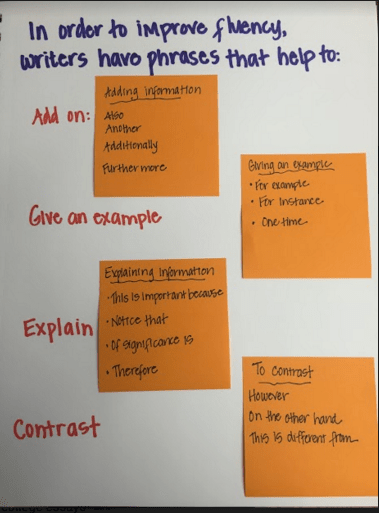 In order to improve fluency,
writers have phrases that help to:
Add on:
Adding information
Also
Another
Additionally
Further more
Give an example
Giving an example
• For example
• For Instance
• One time
Explain
Explaining Information
• This is important because
• Notice that
• Of significance is
• Therefore
Contrast
To Contrast
However
On the other hand
This is different from